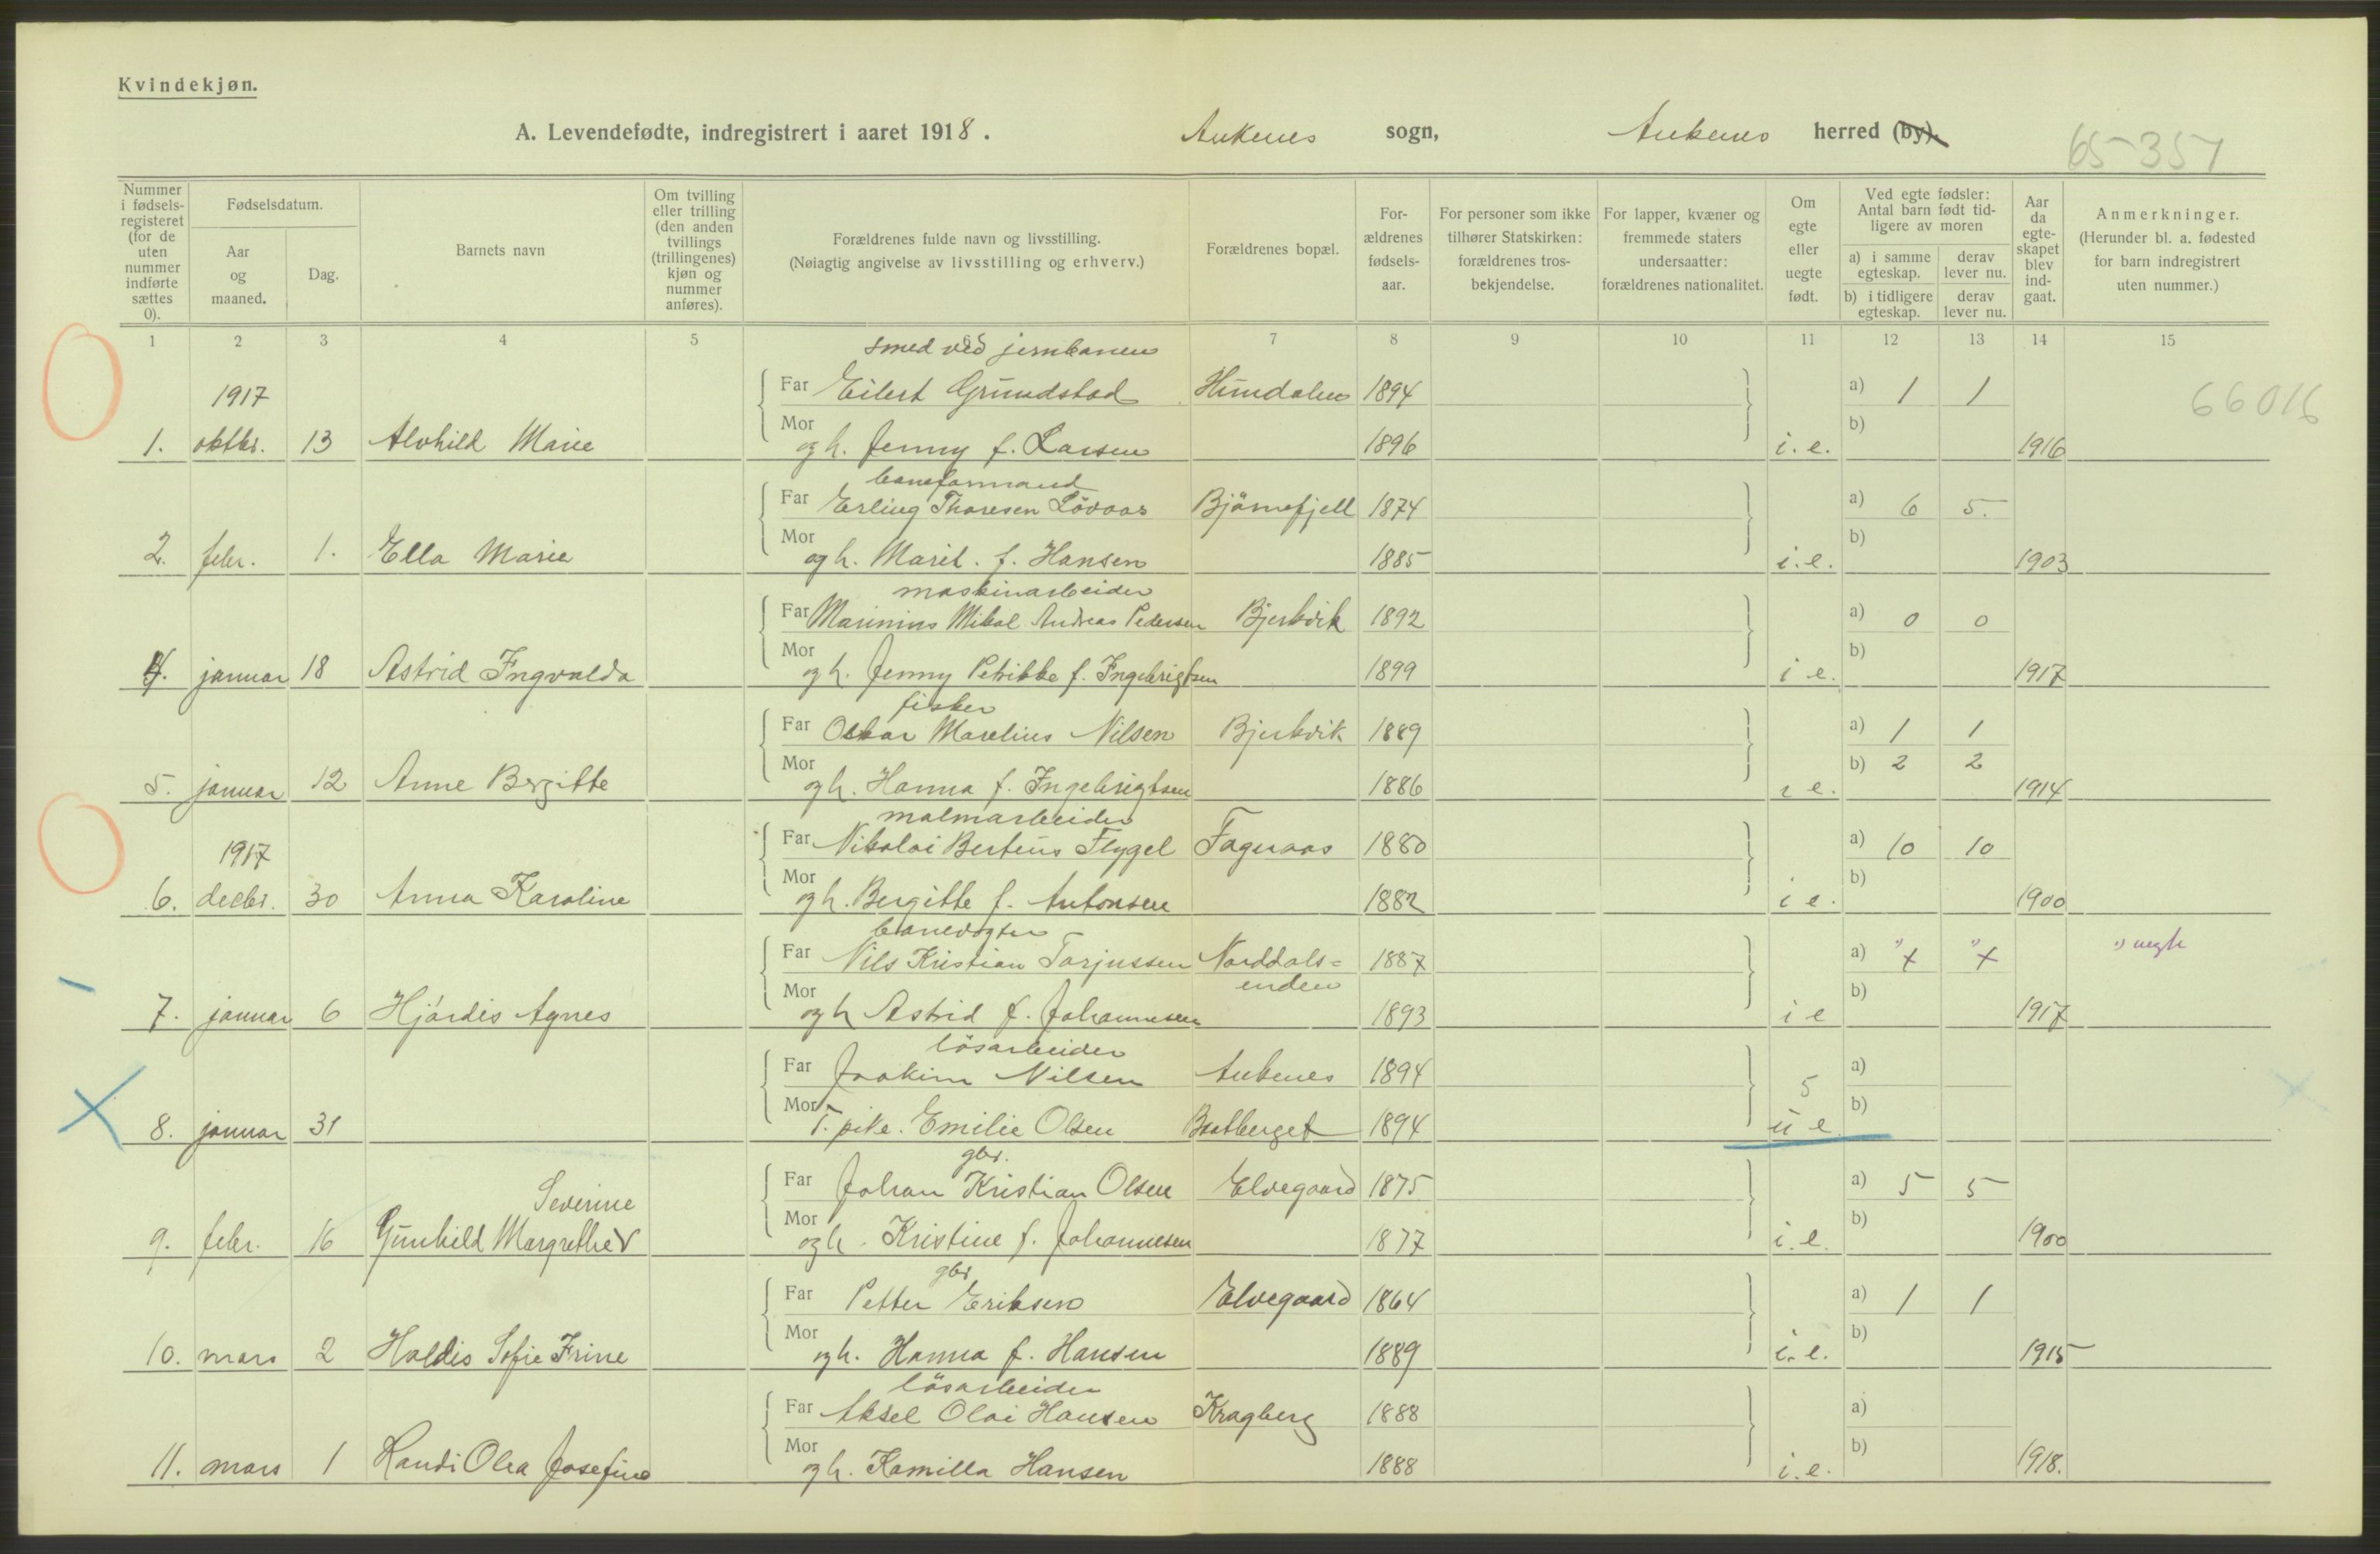 Kvindekjøn.
A. Levendefødte, indregistrert i aaret 1918. Ankenes sogn, Ankenes herred (by).
65-351
Nummer i fødselsregisteret (for de uten nummer indførte sættes 0).
Fødselsdatum.
Aar og maaned.
Dag.
Barnets navn
Om tvilling eller trilling (den anden tvillings (trillingenes) kjøn og nummer anføres).
Forældrenes fulde navn og livsstilling.
(Nøiagtig angivelse av livsstilling og erhverv.)
Forældrenes bopæl.
Forældrenes fødselsaar.
For personer som ikke tilhører Statskirken: forældrenes trosbekjendelse.
For lapper, kvæner og fremmede staters undersaatter: forældrenes nationalitet.
Om egte eller uegte født.
Ved egte fødsler: Antal barn født tidligere av moren
a) i samme egteskap. derav lever nu.
b) i tidligere egteskap. derav lever nu.
Aar da egteskapet blev indgaat.
Anmerkninger.
(Herunder bl. a. fødested for barn indregistrert uten nummer.)
1 2 3 4 5 6 7 8 9 10 11 12 13 14 15
smed ved jernbanen
1917 Far Eilert Grundstad Hundalen 1894 a) 1 1 66016
1. oktbr. 13 Alvhild Marie Mor og h. Jenny f. Larsen 1896 i. e. b) 1916
baneformand
Far Erling Thoresen Lövaas Bjørnefjell 1874 a) 6 5.
2. febr. 1. Ella Marie Mor og h. Marit. f. Hansen 1885 i. e. b) 1903
maskinarbeider
Far Marinius Mikal Andreas Pedersen Bjerkvik 1892 a) 0 0
4. januar 18 Astrid Ingvalda Mor og h. Jenny Petrikke f. Ingebrigtsen 1899 i e. b) 1917
fisker
Far Oskar Marelius Nilsen Bjerkvik 1889 a) 1 1
5. januar 12 Anne Bergitte Mor og h. Hanna f. Ingebrigtsen 1886 i e. b) 2 2 1914
malmarbeider
1917 Far Nikolai Berteus Flygel Fagernaas 1880 a) 10 10
6. decbr. 30 Anna Karoline Mor og h. Bergitte f. Antonsen 1882 i e. b) 1900
banevogter
Far Nils Kristian Torjussen Norddals= 1887 a) "x "x " uegte
enden
7. januar 6 Hjördis Agnes Mor og h Astrid f. Johannesen 1893 i e b) 1917
lösarbeider
Far Joakim Nilsen Ankenes 1894 5 a)
8. januar 31 Mor T. pike. Emilie Olsen Bratberget 1894 u e b)
gbr.
Severine Far Johan Kristian Olsen Elvegaard 1875 a) 5 5
9. febr. 16 Gunhild Margrethe V Mor og h. Kristine f. Johannesen 1877 i. e. b) 1900
gbr
Far Petter Eriksen Elvegaard 1864 a) 1 1
10. mars 2 Haldis Sofie Irine Mor og h. Hanna f. Hansen 1889 i. e. b) 1915
lösarbeider
Far Aksel Olai Hansen Kragberg 1888 a)
11. mars 1 Randi Olea Josefine Mor og h. Kamilla Hansen 1888 i. e. b) 1918.